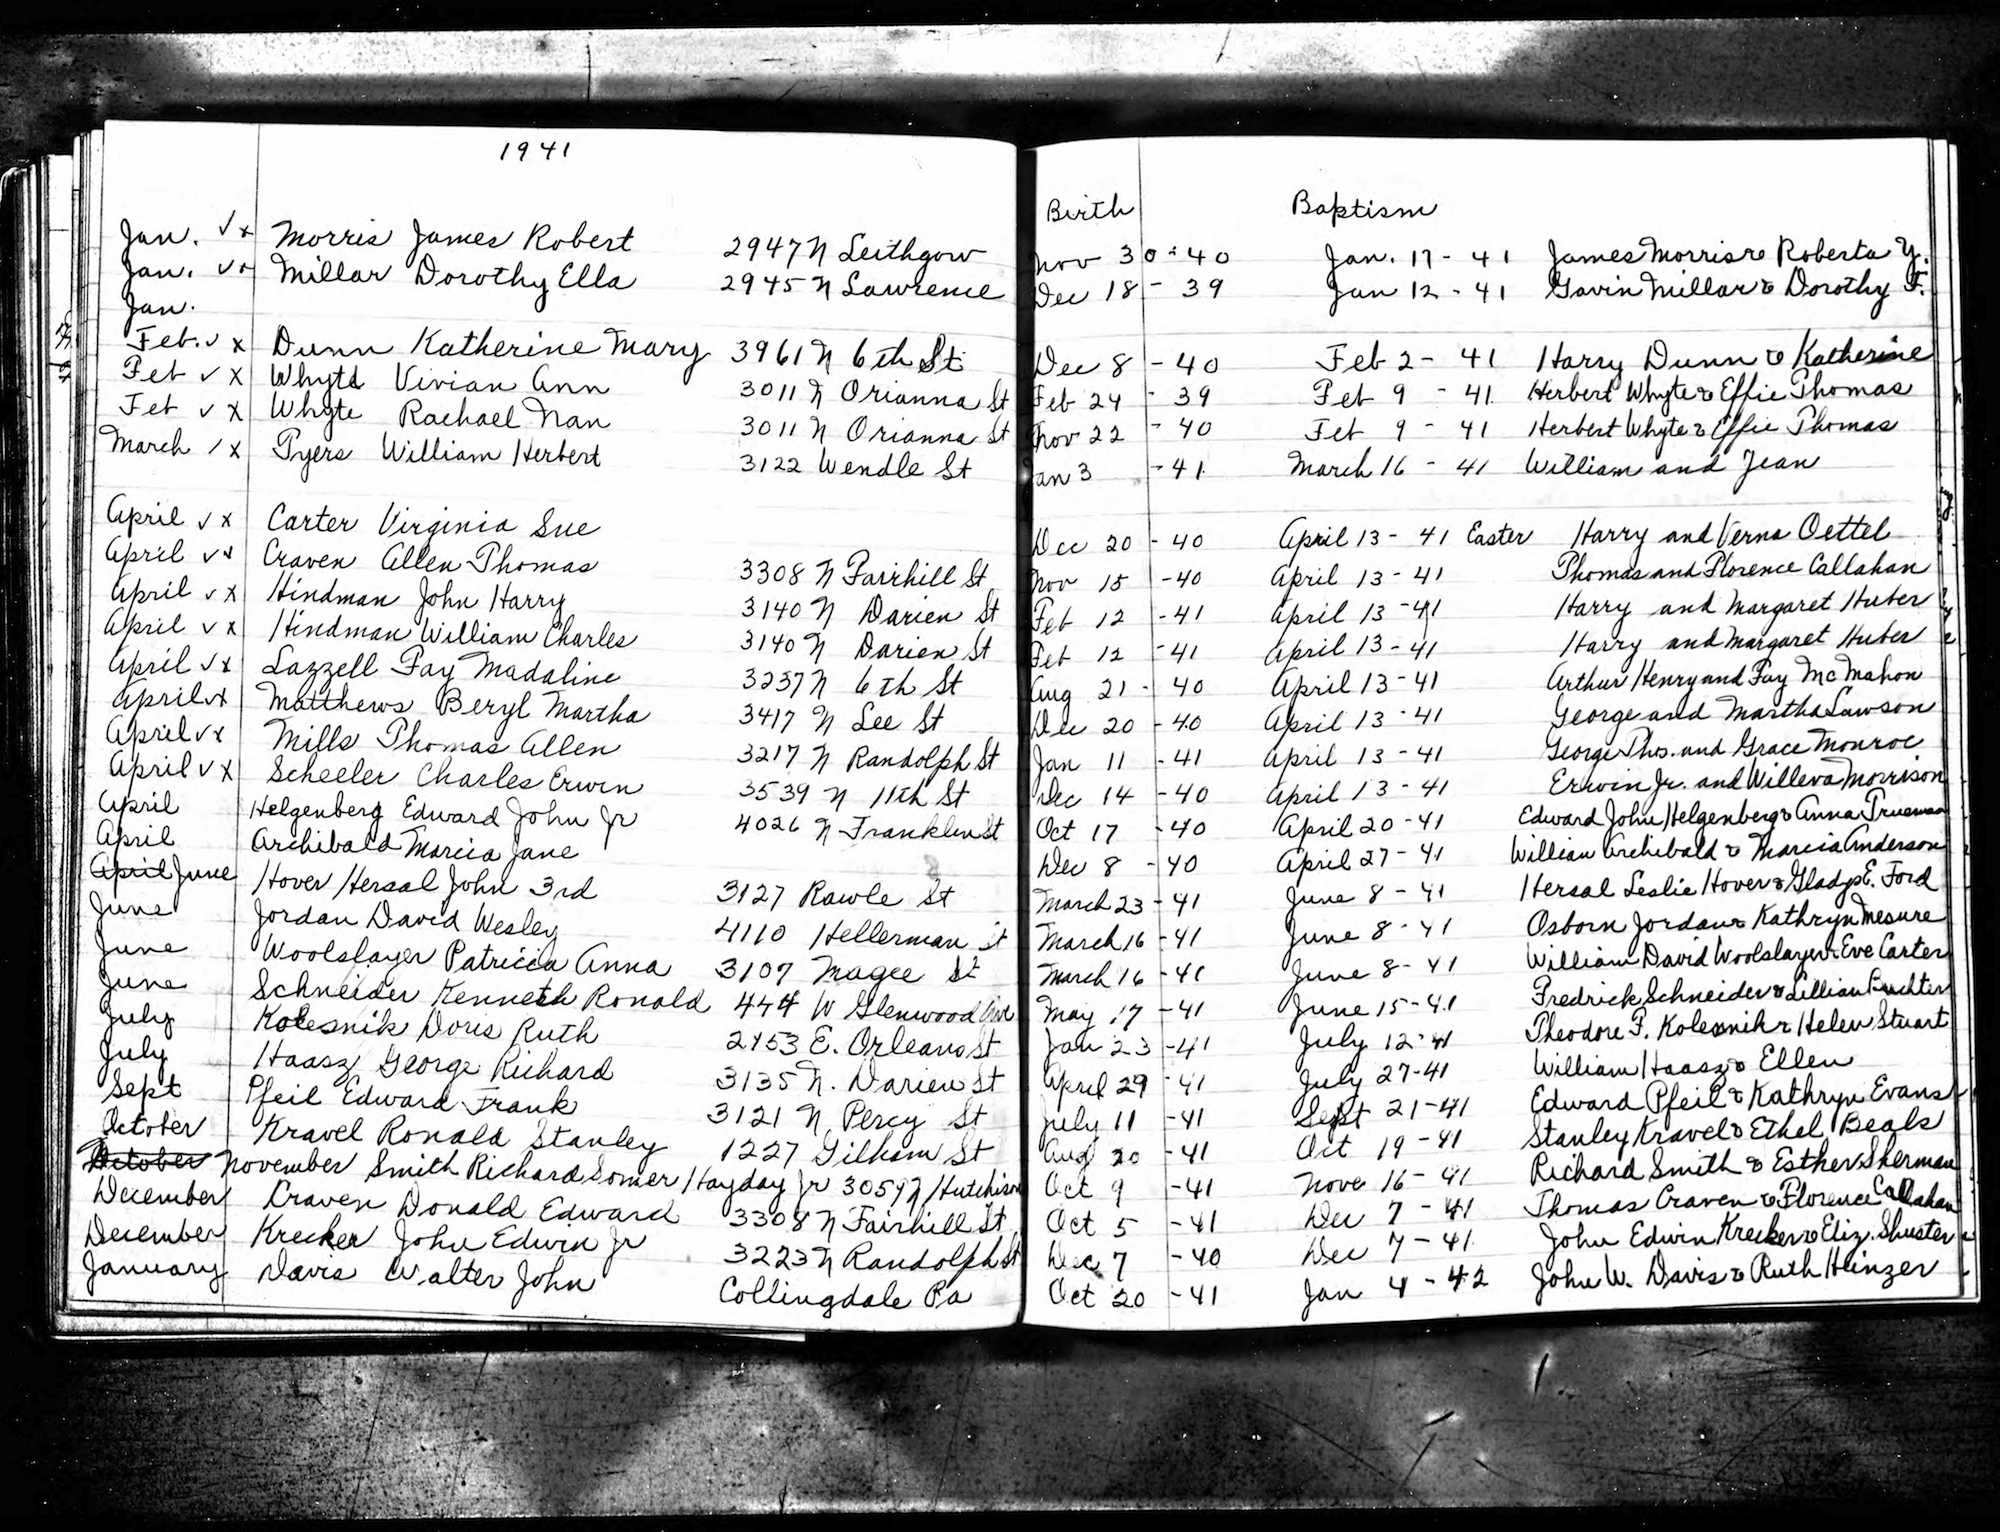 1941
Birth Baptism
Jan. √x Morris James Robert 2947 N Leithgow Nov 30-40 Jan. 17-41 James Morris & Roberta Y.
Jan. √x Millar Dorothy Ella 2945 N Lawrence Dec 18-39 Jan 12-41 Gavin Millar & Dorothy F.
Jan.
Feb. √ x Dunn Katherine Mary 3961 N 6th St. Dec 8-40 Feb 2-41 Harry Dunn & Katherine
Feb √ x Whyte Vivian Ann 3011 N Orianna St Feb 24-39 Feb 9-41 Herbert Whyte & Effie Thomas
Feb √ x Whyte Rachael Nan 3011 N Orianna St Nov 22-40 Feb 9-41 Herbert Whyte & Effie Thomas
March / x Pyers William Herbert 3122 Wendle St Jan 3-41 March 16-41 William and Jean
April √ x Carter Virginia Sue Dec 20-40 April 13-41 Easter Harry and Verna Oettel
April √x Craven Allen Thomas 3308 N Fairhill St Nov 15-40 April 13-41 Thomas and Florence Callahan
April √ x Hindman John Harry 3140 N Darien St Feb 12-41 April 13-41 Harry and Margaret Huber
April √ x Hindman William Charles 3140 N Darien St Feb 12-41 April 13-41 Harry and Margaret Huber
April √x Lazzell Fay Madaline 3237 N 6th St Aug 21-40 April 13-41 Arthur Henry and Fay McMahon
April √x Matthews Beryl Martha 3417 N Lee St Dec 20-40 April 13-41 George and Martha Lawson
April √x Mills Thomas Allen 3217 N Randolph St Jan 11-41 April 13-41 George Thos. and Grace Monroe
April √ x Scheeler Charles Erwin 3539 N 11th St Dec 14-40 April 13-41 Erwin Jr. and Willeva Morrison
April Helgenberg Edward John Jr 4026 N Franklin St Oct 17-40 April 20-41 Edward John Helgenberg & Anna Trueman
April Archibald Marcia Jane Dec 8-40 April 27-41 William Archibald & Marcia Anderson
April June Hover Hersal John 3rd 3127 Rawle St March 23-41 June 8-41 Hersal Leslie Hover & Gladys E. Ford
June Jordan David Wesley 4110 Hellerman St March 16-41 June 8-41 Osborn Jordan & Kathryn Mesure
June Woolslayer Patricia Anna 3107 Magee St March 16-41 June 8-41 William David Woolslayer & Eve Carter
June Schneider Kenneth Ronald 444 W Glenwood Ave May 17-41 June 15-41 Fredrick Schneider & Lillian
July Kolesnik Doris Ruth 2153 E. Orleans St Jan 23-41 July 12-41 Theodore P. Kolesnik & Helen Stuart
July Haasz George Richard 3135 N. Darien St April 29-41 July 27-41 William Haasz & Ellen
Sept Pfeil Edward Frank 3121 N. Percy St July 11-41 Sept 21-41 Edward Pfeil & Kathryn Evans
October Kravel Ronald Stanley 1227 Gilham St Aug 20-41 Oct 19-41 Stanley Kravel & Ethel Beals
October November Smith Richard Somer Hayday Jr 3059 N Hutchison Oct 9-41 Nove 16-41 Richard Smith & Esther Sherman
December Craven Donald Edward 3308 N Fairhill St Oct 5-41 Dec 7-41 Thomas Craven & Florence Callahan
December Krecker John Edwin Jr 3223 N Randolph St Dec 7-40 Dec 7-41 John Edwin Krecker & Eliz. Shuster
January Davis Walter John Collingdale Pa Oct 20-41 Jan 4-42 John W. Davis & Ruth Hinzer